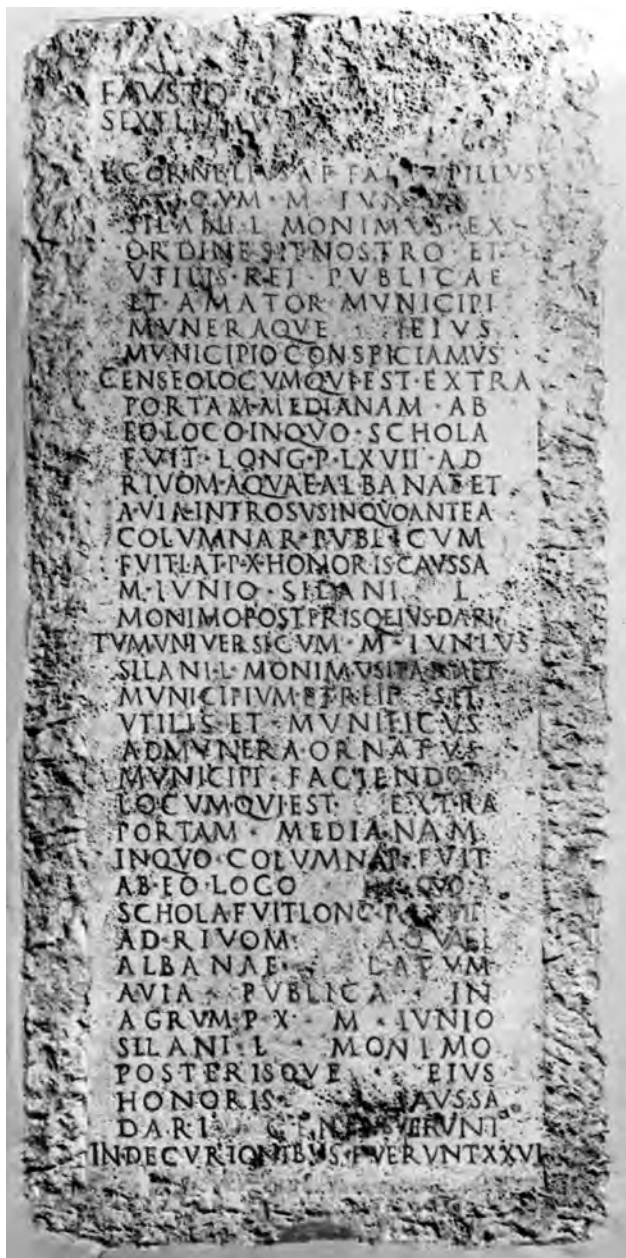 FAVSTO
SEX
L CORNELIVS A F FAL PILLVS
CVM · M · IVN
SILANI · L MONIMVS · EX
ORDINE SIT NOSTRO · ET
VTILIS · REI · PVBLICAE
ET · AMATOR · MVNICIPI
MVNERAQVE EIVS
MVNICIPIO CONSPICIAMVS
CENSEO LOCVM QVI EST · EXTRA
PORTAM · MEDIANAM · AB
EO LOCO IN QVO · SCHOLA
FVIT · LONG · P · LXVII · AD
RIVOM · AQVAE ALBANAE ET
A · VIA · INTROSVS IN QVO ANTEA
COLVMNAR · PVBLICVM
FVIT LAT · P · X · HONORIS CAVSSA
M · IVNIO · SILANI L
MONIMO POSTERISQ EIVS · DARI
TVM VNIVERSI CVM · M · IVNIVS
SILANI · L · MONIMVS ET
MVNICIPIVM ET REI P · SIT
VTILIS · ET · MVNIFICVS
AD MVNERA · ORNATVS
MVNICIPI · FACIEND
LOCVM QVI EST EXTRA
PORTAM · MEDIANAM
IN QVO · COLVMNAR FVIT
AB · EO · LOCO IN QVO
SCHOLA FVIT LONG P
AD · RIVOM AQVAE
ALBANAE · LATVM
A VIA · PVBLICA · IN
AGRVM · P · X · M · IVNIO
SILANI · L · MONIMO
POSTERISQVE · EIVS
HONORIS CAVSSA
DARI CENSVERVNT
IN DECVRIONIBVS · FVERVNT XXVI